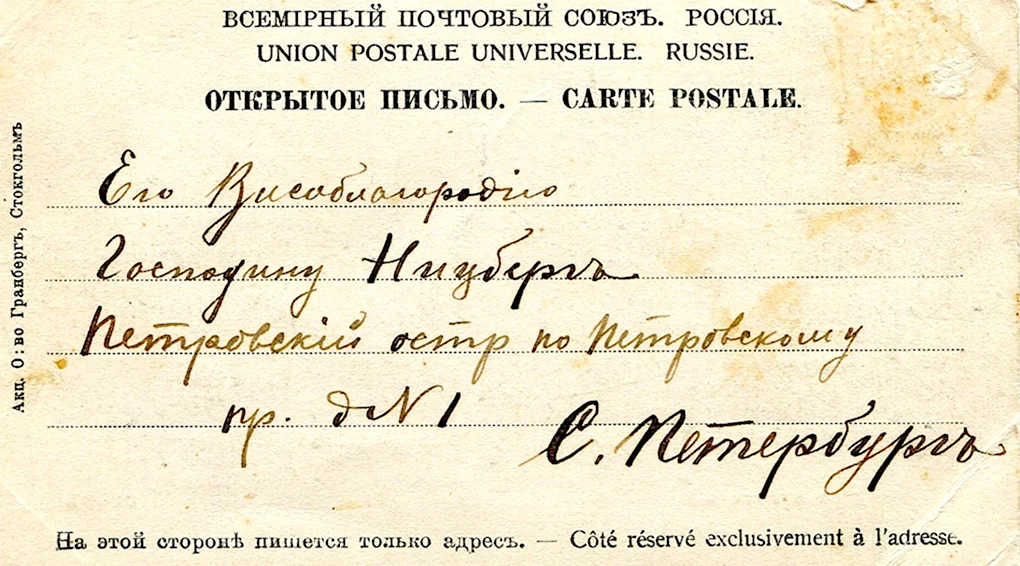 ВСЕМІРНЫЙ ПОЧТОВЫЙ СОЮЗЪ. РОССІЯ.
UNION POSTALE UNIVERSELLE. RUSSIE.
ОТКРЫТОЕ ПИСЬМО. — CARTE POSTALE.
Его Високоблагородію
Господину Ницбергъ
Петровскій остр по Петровскому
пр. д N 1
С. Петербургъ
На этой сторонѣ пишется только адресъ. — Côté réservé exclusivement à l'adresse.
Акц. О:во Гранбергъ, Стокгольмъ